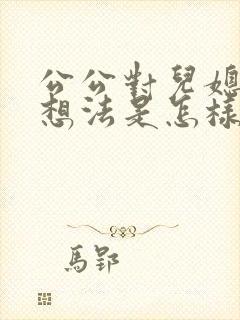 公公對兒媳
想法是怎樣
馬郢